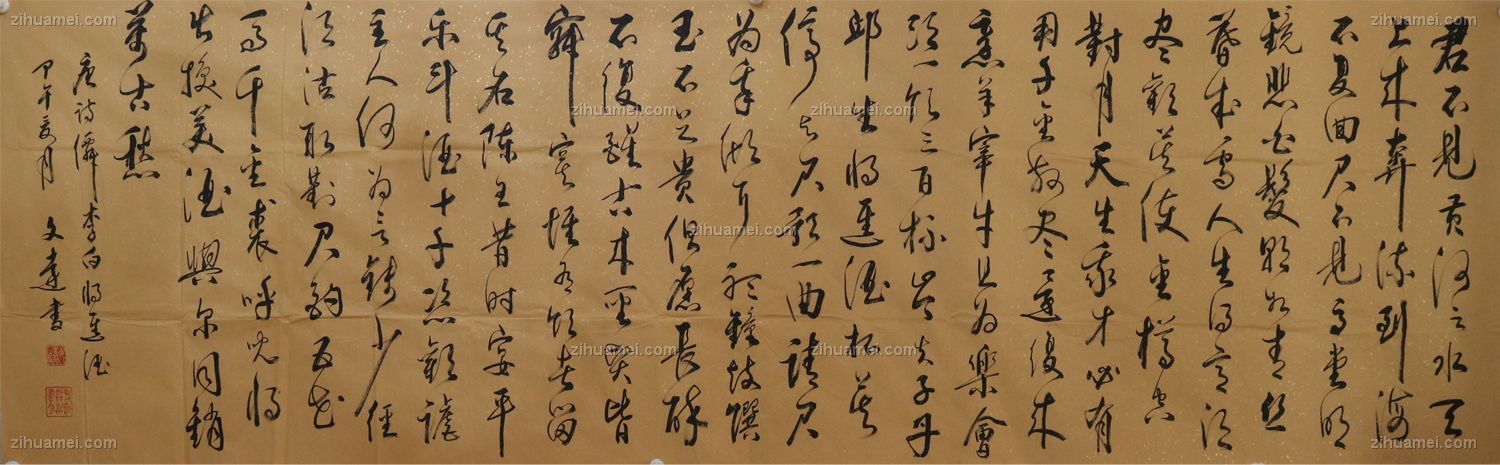 君不見黃河之水天
上來奔流到海
不復回君不見高堂明
鏡悲白髮朝如青絲
暮成雪人生得意須
盡歡莫使金樽空
對月天生我才必有
用千金散盡還復來
烹羊宰牛且為樂會
須一飲三百杯岑夫子丹
邱生將進酒杯莫
停與君歌一曲請君
為我傾耳聽鐘鼓饌
玉不足貴但願長醉
不復醒古來聖賢皆
寂寞惟有飲者留
其名陳王昔時宴平
乐斗酒十千恣歡謔
主人何為言錢少徑
須沽取對君酌五花
馬千金裘呼兒將
出換美酒與爾同銷
萬古愁
唐詩僊李白將進酒
甲午夏月 文達書
zihuamei.com